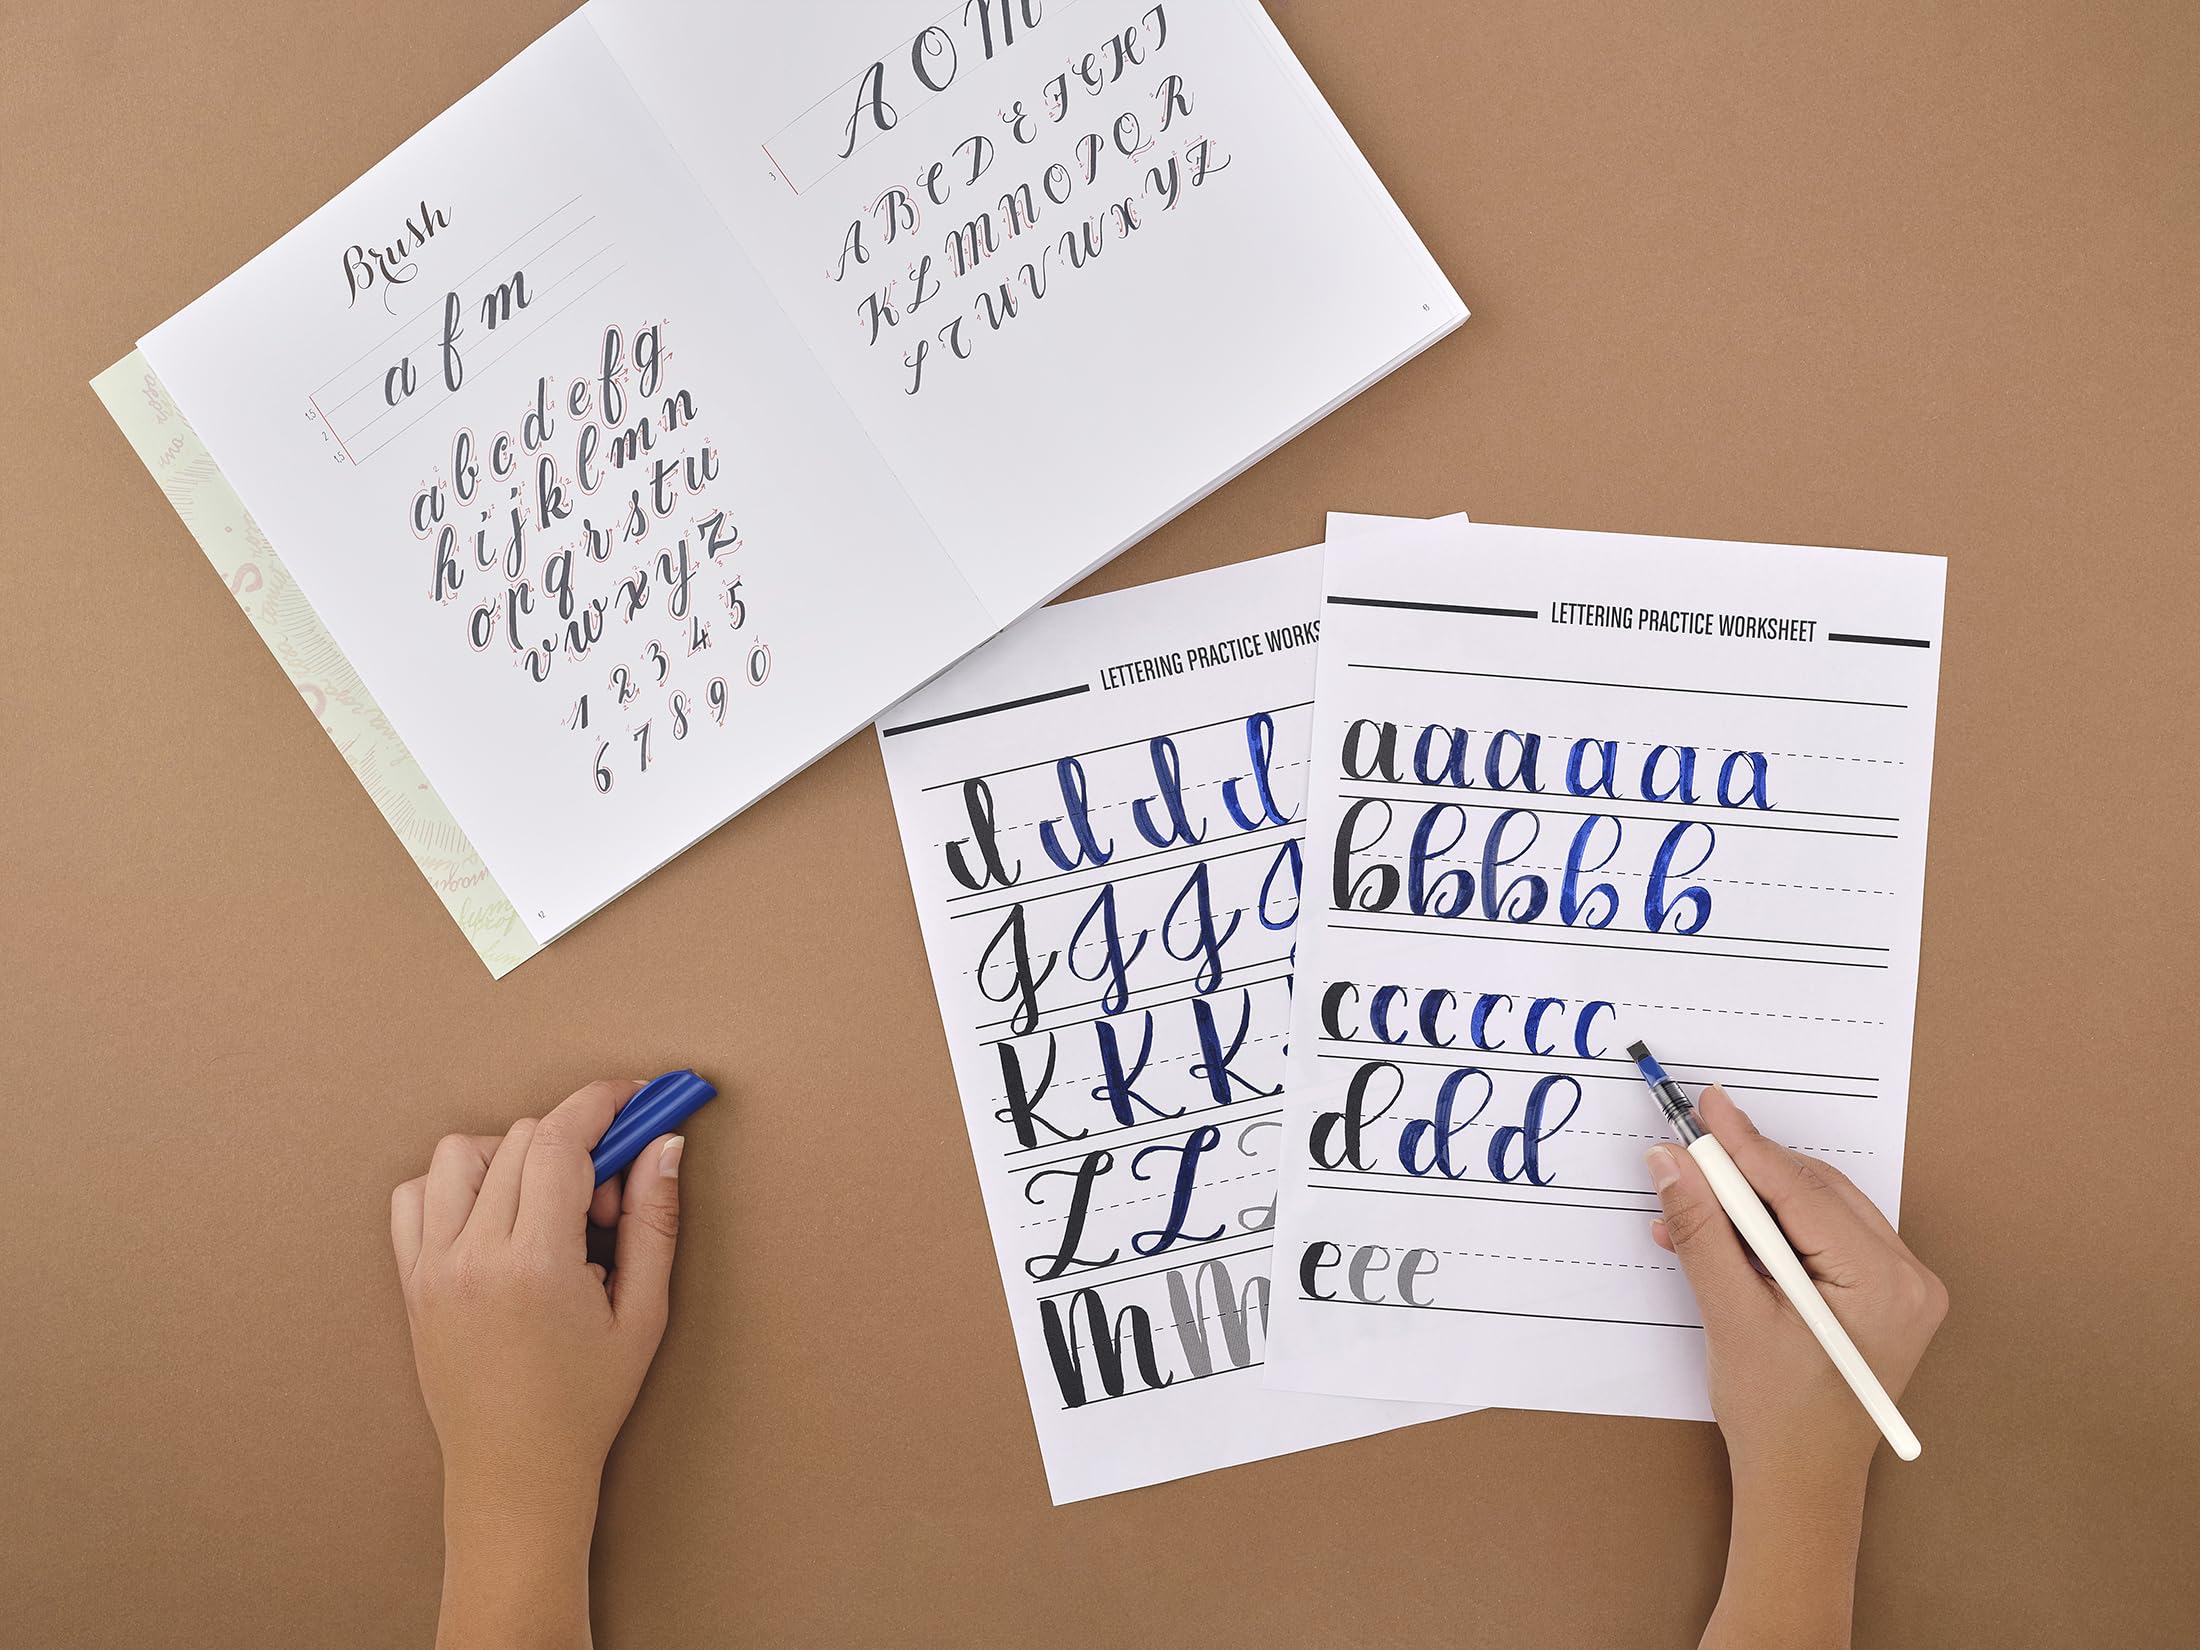 Brush
1,5
2
1,5
a f m
a b c d e f g
h i j k l m n
o p q r s t u
v w x y z
1 2 3 4 5
6 7 8 9 0
12
A O M
3
A B C D E F G H I
K L M N O P Q R
S T U V W X Y Z
13
LETTERING PRACTICE WORKS
d d d d
g g g
K K K
L L
m m
LETTERING PRACTICE WORKSHEET
a a a a a a
b b b b b
c c c c c c
d d d
e e e